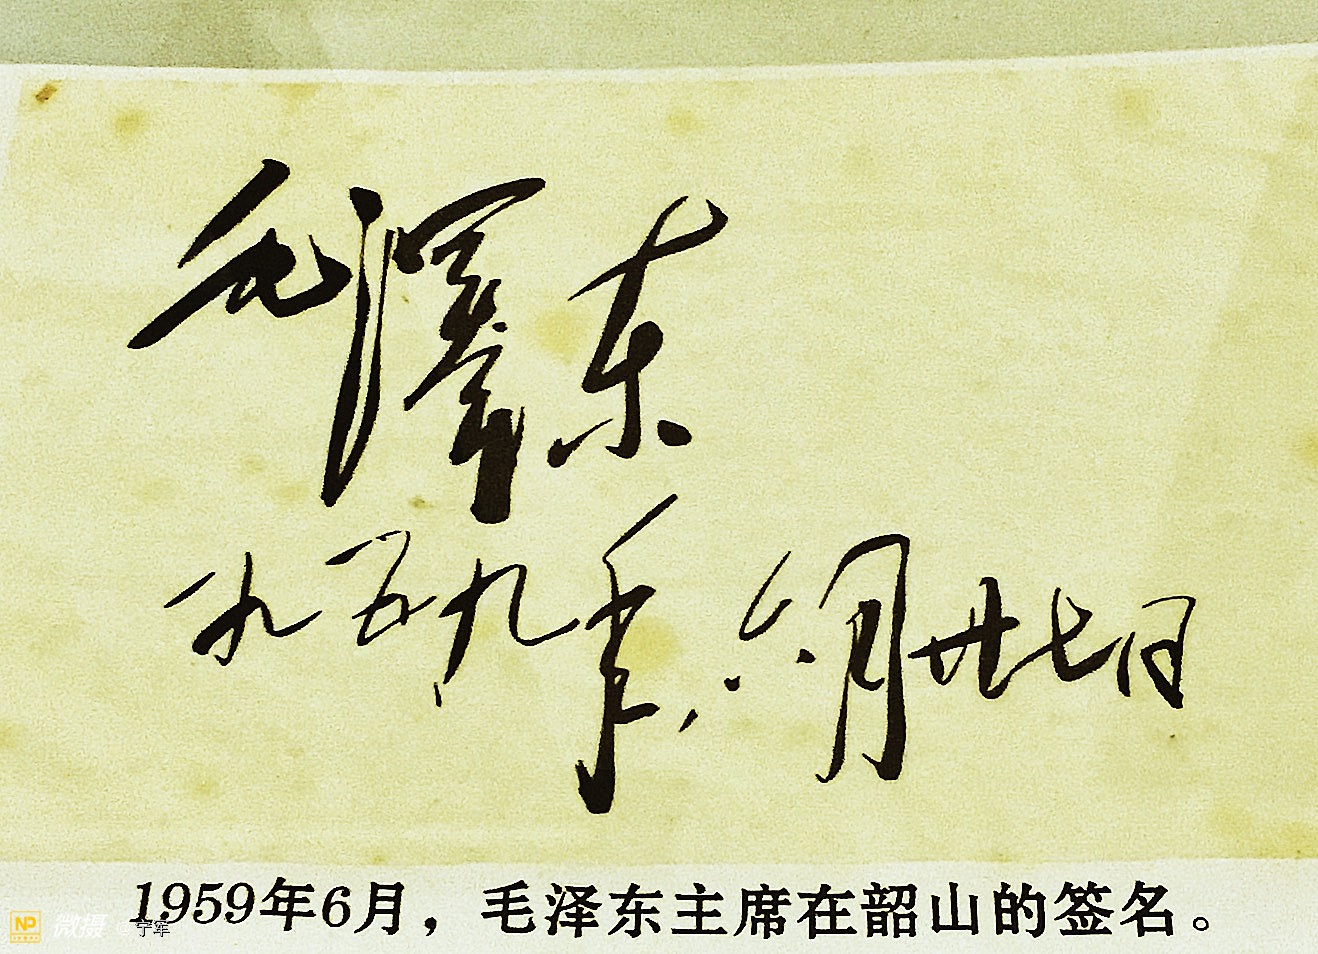 毛澤东
一九五九年,六月廿七日
1959年6月，毛泽东主席在韶山的签名。
NP 微摄 @宁军